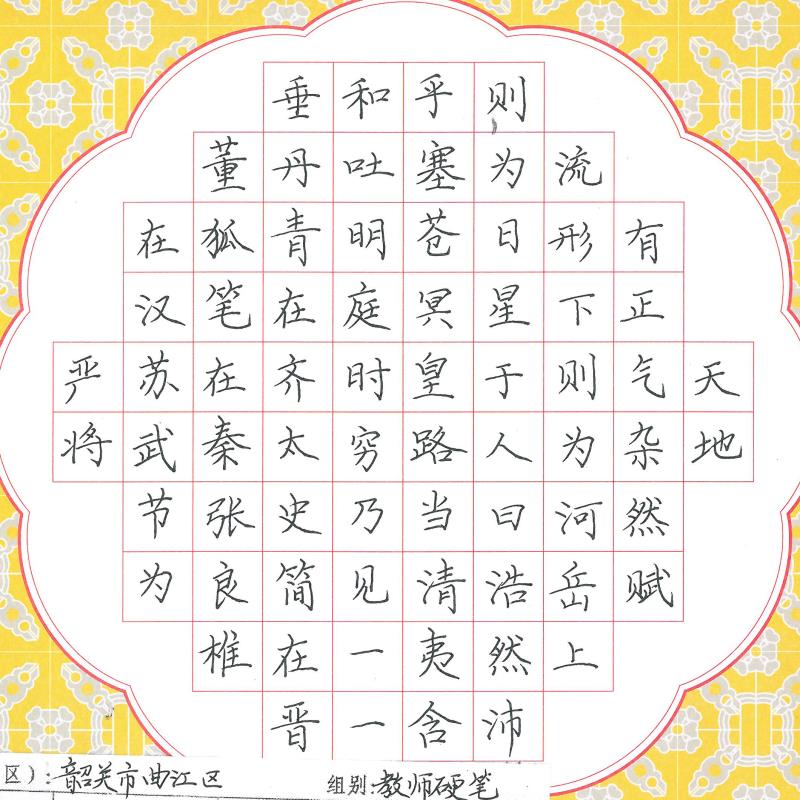 天地
有正气杂然赋
流形下则为河岳上
则为日星于人曰浩然沛
乎塞苍冥皇路当清夷含
和吐明庭时穷乃见一一
垂丹青在齐太史简在晋
董狐笔在秦张良椎
在汉苏武节为
严将
区）：韶关市曲江区
组别：教师硬笔